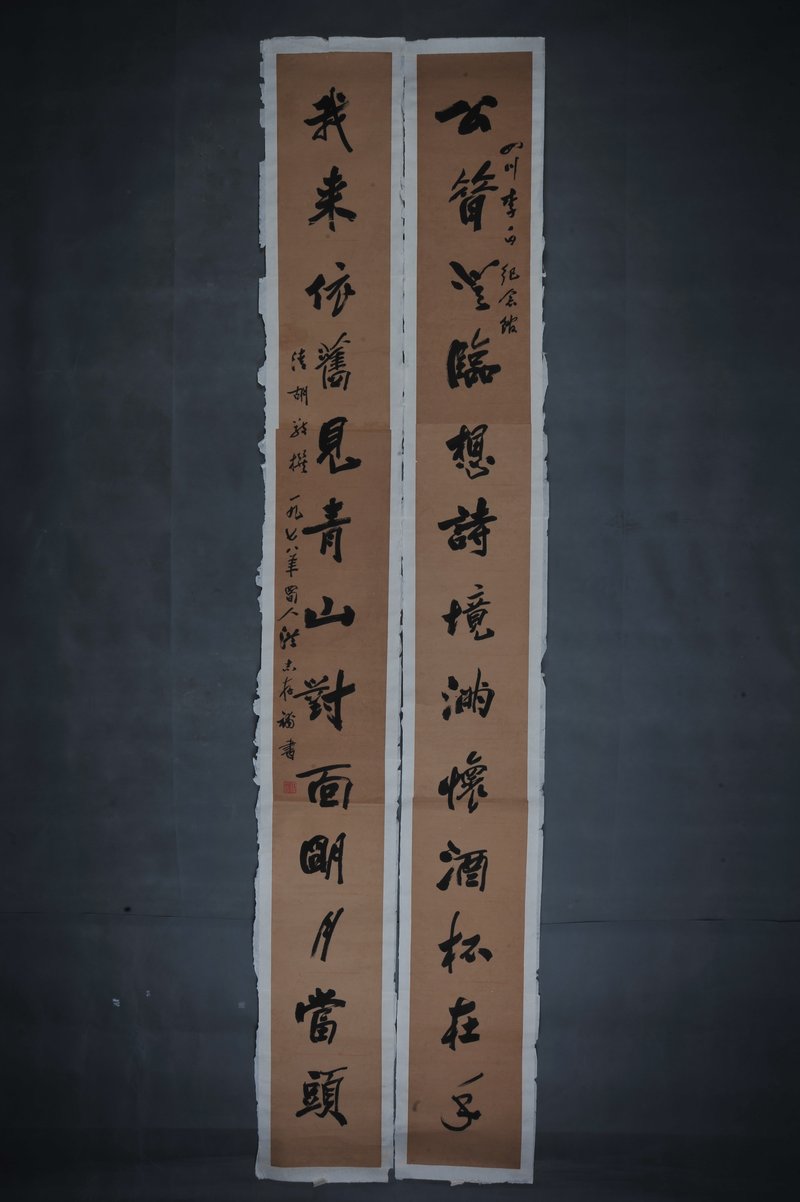 四川李白紀念館
公昔登臨想詩境滿懷酒杯在手
我来依舊見青山對面明月當頭
清胡撰 一九七八年蜀人洪志存補書